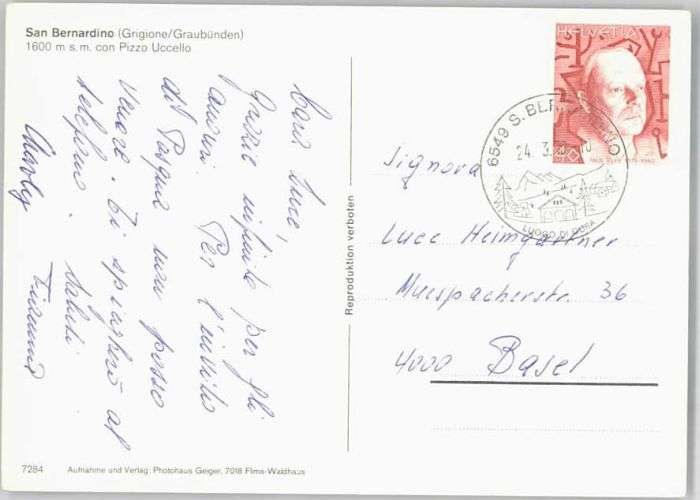 San Bernardino (Grigione/Graubünden)
1600 m s. m. con Pizzo Uccello
Cara Luce,
Grazie infinite per gli
auguri. Per l'invito
di Pasqua non posso
venire. Ti spiegherò al
telefono. Saluti
Charly
Reproduktion verboten
HELVETIA
40
PAUL KLEE 1879-1940
6549 S. BERNARDINO
24. 3.
LUOGO DI CURA
Signora
Luce Heimgartner
Muespacherstr. 36
4000 Basel
7284 Aufnahme und Verlag: Photohaus Geiger, 7018 Flims-Waldhaus